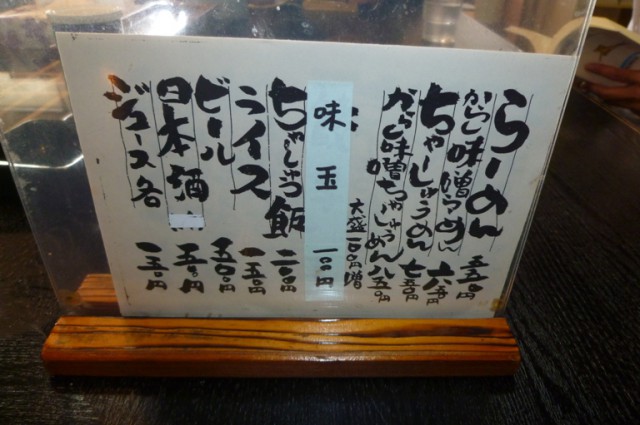 らーめん 五五〇円
からし味噌らーめん 六五〇円
ちゃーしゅうめん 七五〇円
からし味噌ちゃーしゅうめん 八五〇円
大盛一〇〇円増
味玉 一〇〇円
ちゃーしゅう飯 二〇〇円
ライス 一五〇円
ビール 五〇〇円
日本酒
ジュース各 一五〇円